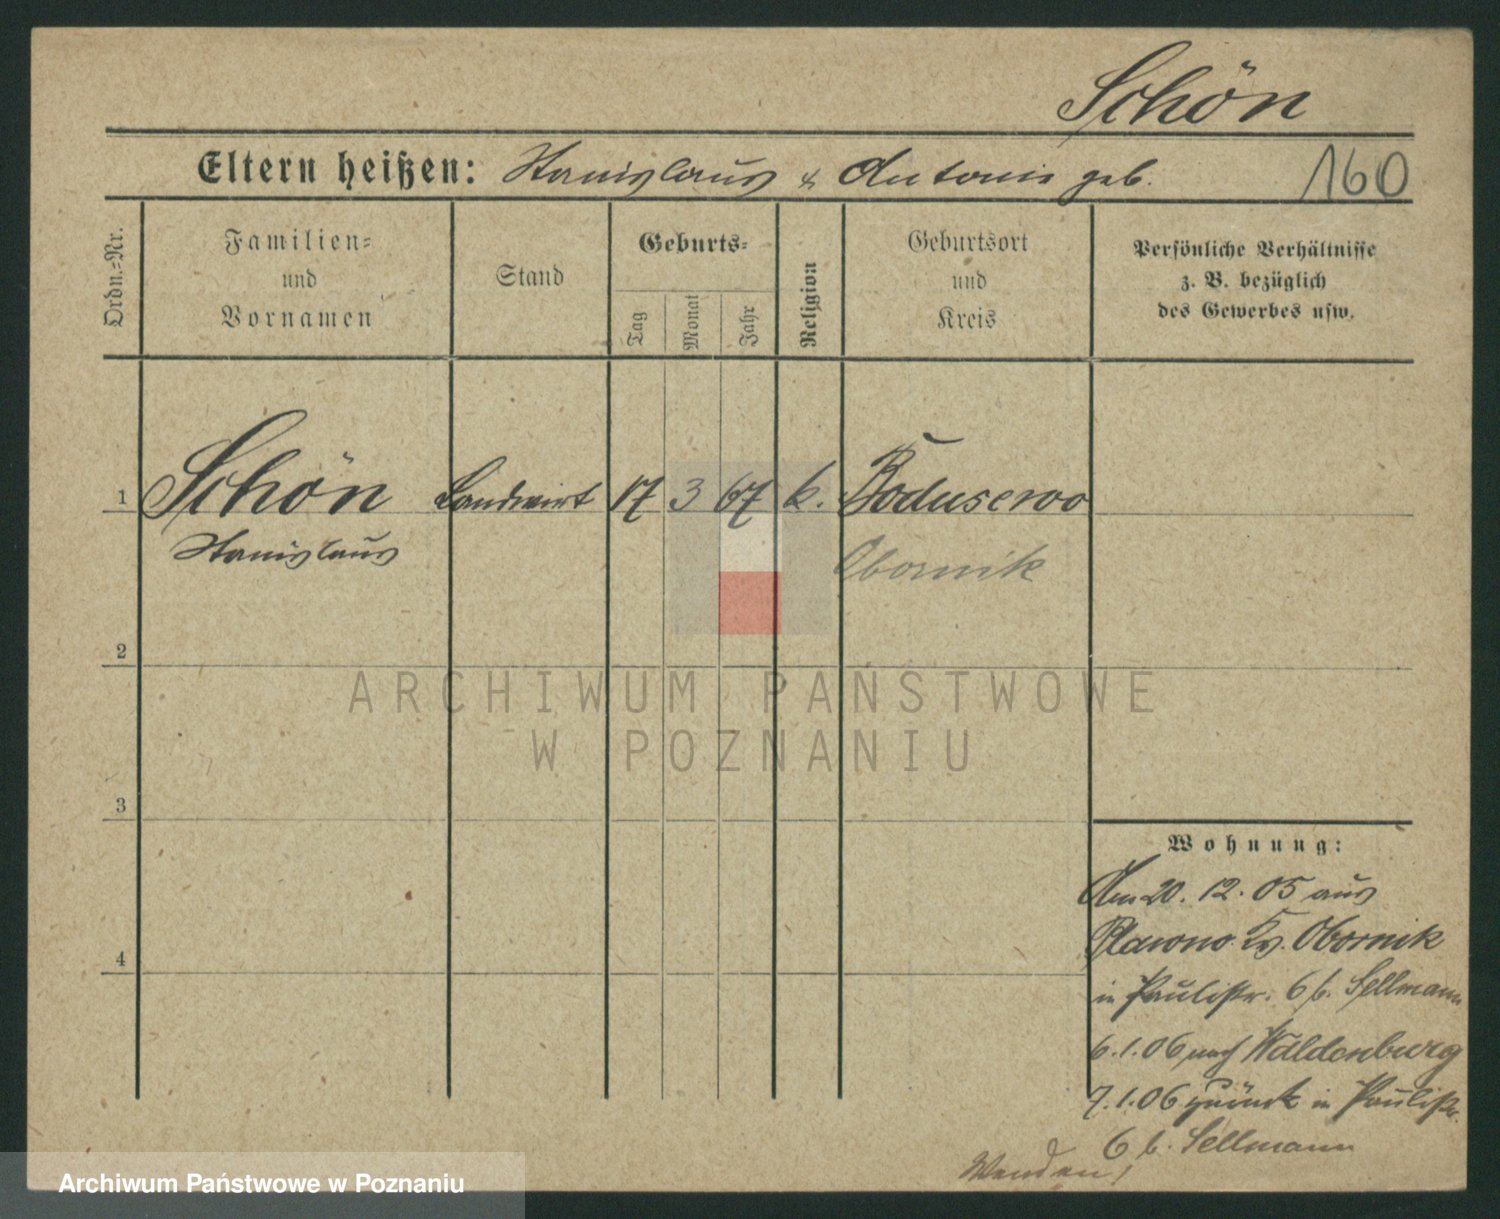 Schön
Eltern heißen: Stanislaus & Antonie geb.
160
Ordn.-Nr.
Familien-
und
Vornamen
Stand
Geburts-
Tag
Monat
Jahr
Religion
Geburtsort
und
Kreis
Persönliche Verhältnisse
z. B. bezüglich
des Gewerbes usw.
1 Schön Landwirt 17 3 67 k. Boduszewo
Stanislaus
Obornik
2
ARCHIWUM PAŃSTWOWE
W POZNANIU
3
Wohnung:
Am 20. 12. 05 aus
Obornik
in Paulistr. 6 b. Sellmann
4
6.1.06 nach Waldenburg
7.1.06 zurück in Paulistr.
6 b. Sellmann
Wenden!
Archiwum Państwowe w Poznaniu